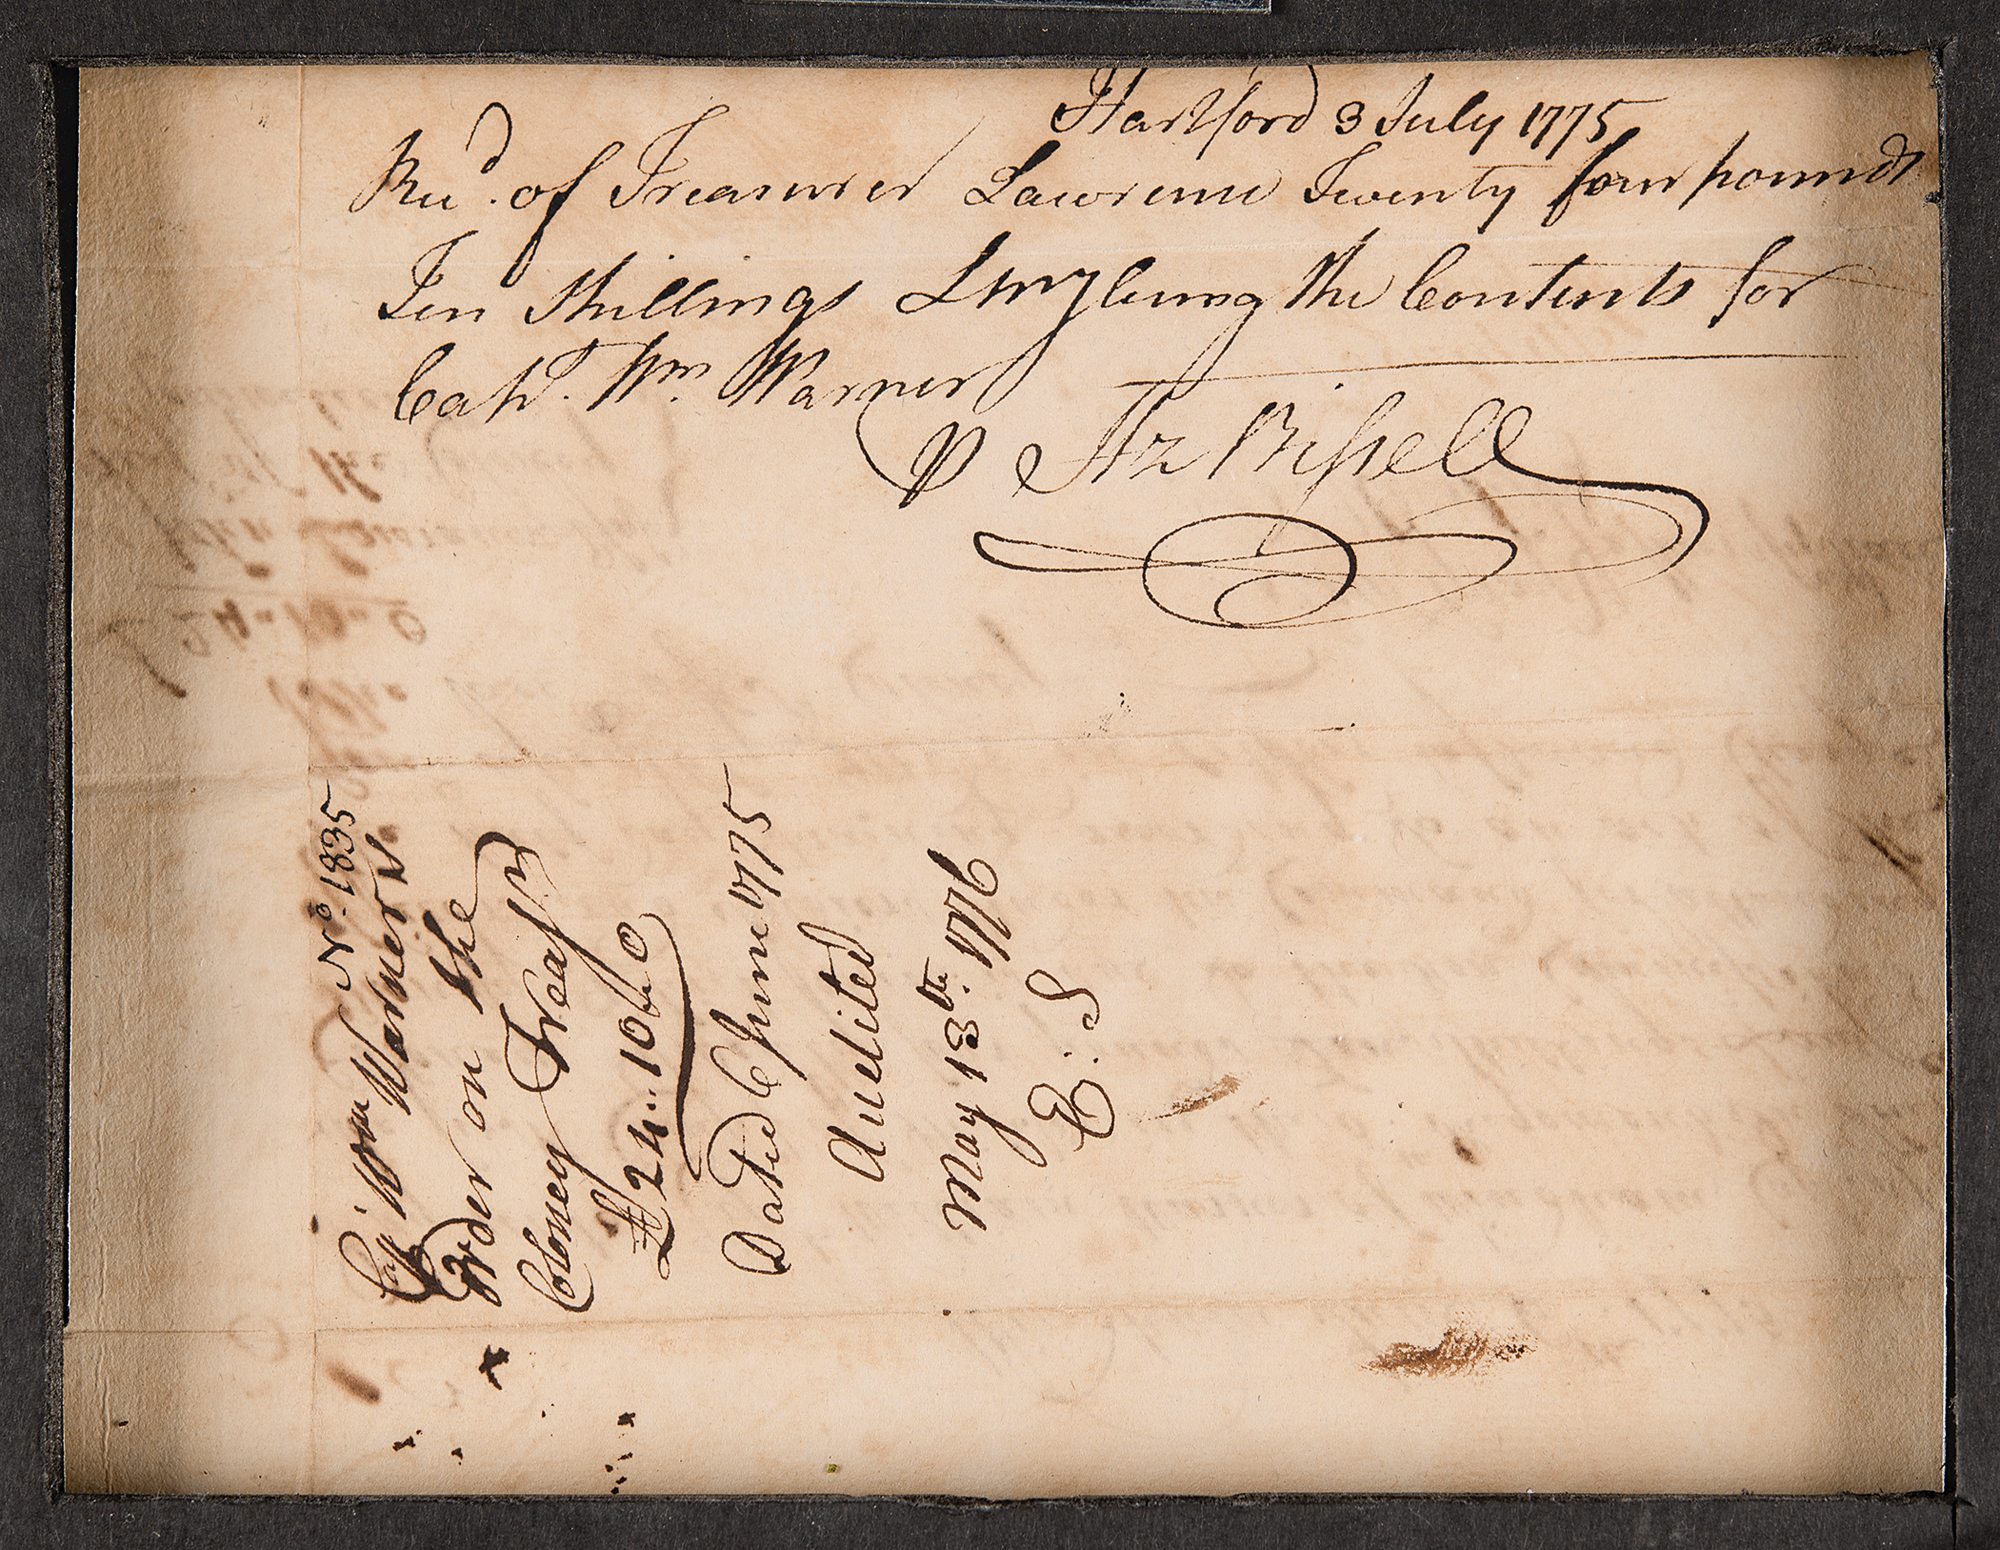 Hartford 3 July 1775
Recd. of Treasurer Lawrence Twenty four pounds
Ten Shillings Lmy being the Contents for
Capt. Wm. Warner
p Hz Bissell
No. 1835
Cap Wm Warner's
Order on the
Coloney Treasr
£24..10..0
Dated June 1775
Audited
May 13th. 1776
E: S